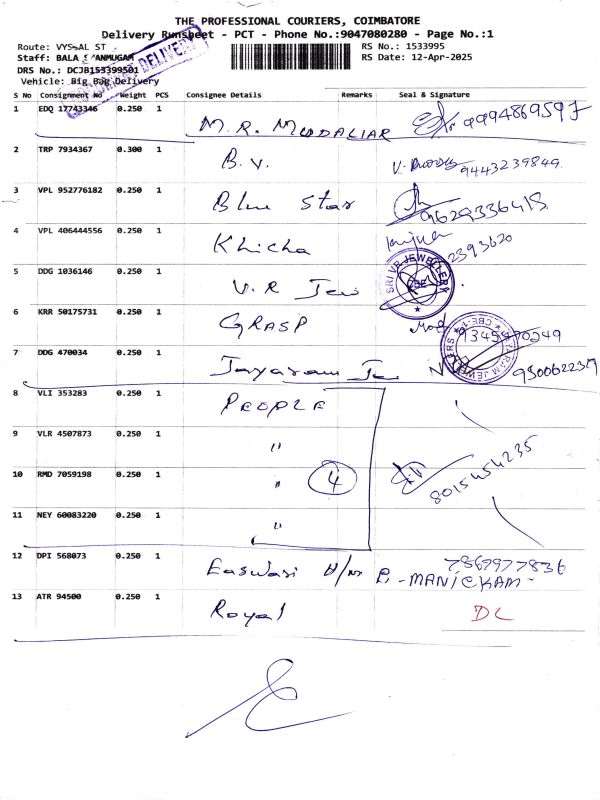 THE PROFESSIONAL COURIERS, COIMBATORE
Delivery Runsheet - PCT - Phone No.:9047080280 - Page No.:1
Route: VYSAL ST
RS No.: 1533995
Staff: BALA S ANMUGAM
RS Date: 12-Apr-2025
DRS No.: DCJB153399501
Vehicle: Big Bag Delivery
DELIVERY
S No Consignment No Weight PCS Consignee Details Remarks Seal & Signature
1 EDQ 17743346 0.250 1 M.R. MUDALIAR 9994869597
2 TRP 7934367 0.300 1 B.V. 9443239849
3 VPL 952776182 0.250 1 Blue Star 9629336418
4 VPL 406444556 0.250 1 Khicha 2393620
5 DDG 1036146 0.250 1 V.R Jew
SRI VR JEWELLERY CBE
6 KRR 50175731 0.250 1 GRASP
7 DDG 470034 0.250 1 Jayaram Je
JAYARAM JEWELLERS CBE-1
8 VLI 353283 0.250 1 PEOPLE
9 VLR 4507873 0.250 1 "
10 RMD 7059198 0.250 1 " 4 8015454235
11 NEY 60083220 0.250 1 "
12 DPI 568073 0.250 1 Easwari H/w P. MANICKAM 7867977836
13 ATR 94500 0.250 1 Royal DL